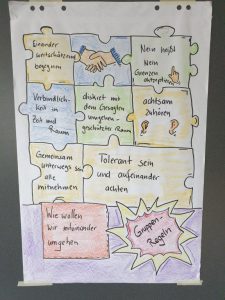 Einander
wertschätzend
begegnen
Nein heißt
Nein
Grenzen
akzeptieren
Verbindlich-
keit in
Zeit und
Raum
diskret mit
dem Gesagten
umgehen -
geschützter Raum
achtsam
zuhören
Gemeinsam
unterwegs sein
alle
mitnehmen
Tolerant sein
und aufeinander
achten
Wie wollen
wir miteinander
umgehen
Gruppen-
Regeln